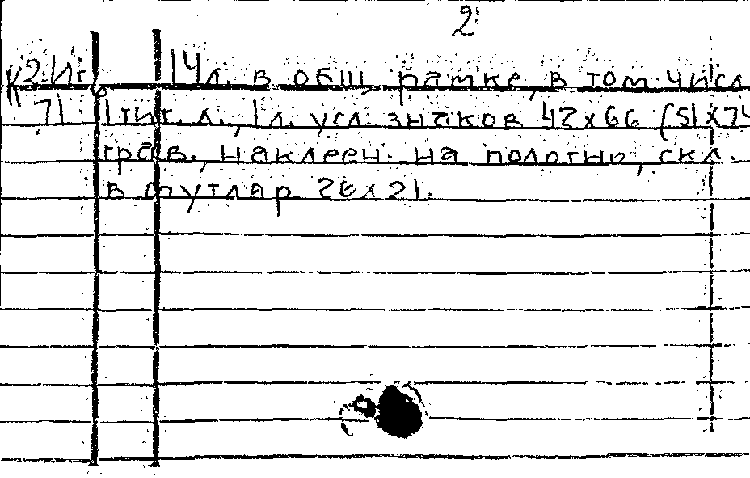 2
14 л. в общ. рамке, в том числ
71 1 тит. л., 1 л. усл. знаков 42х66 (51х74
грав., наклеен. на полотно, скл.
в футляр 26х21.